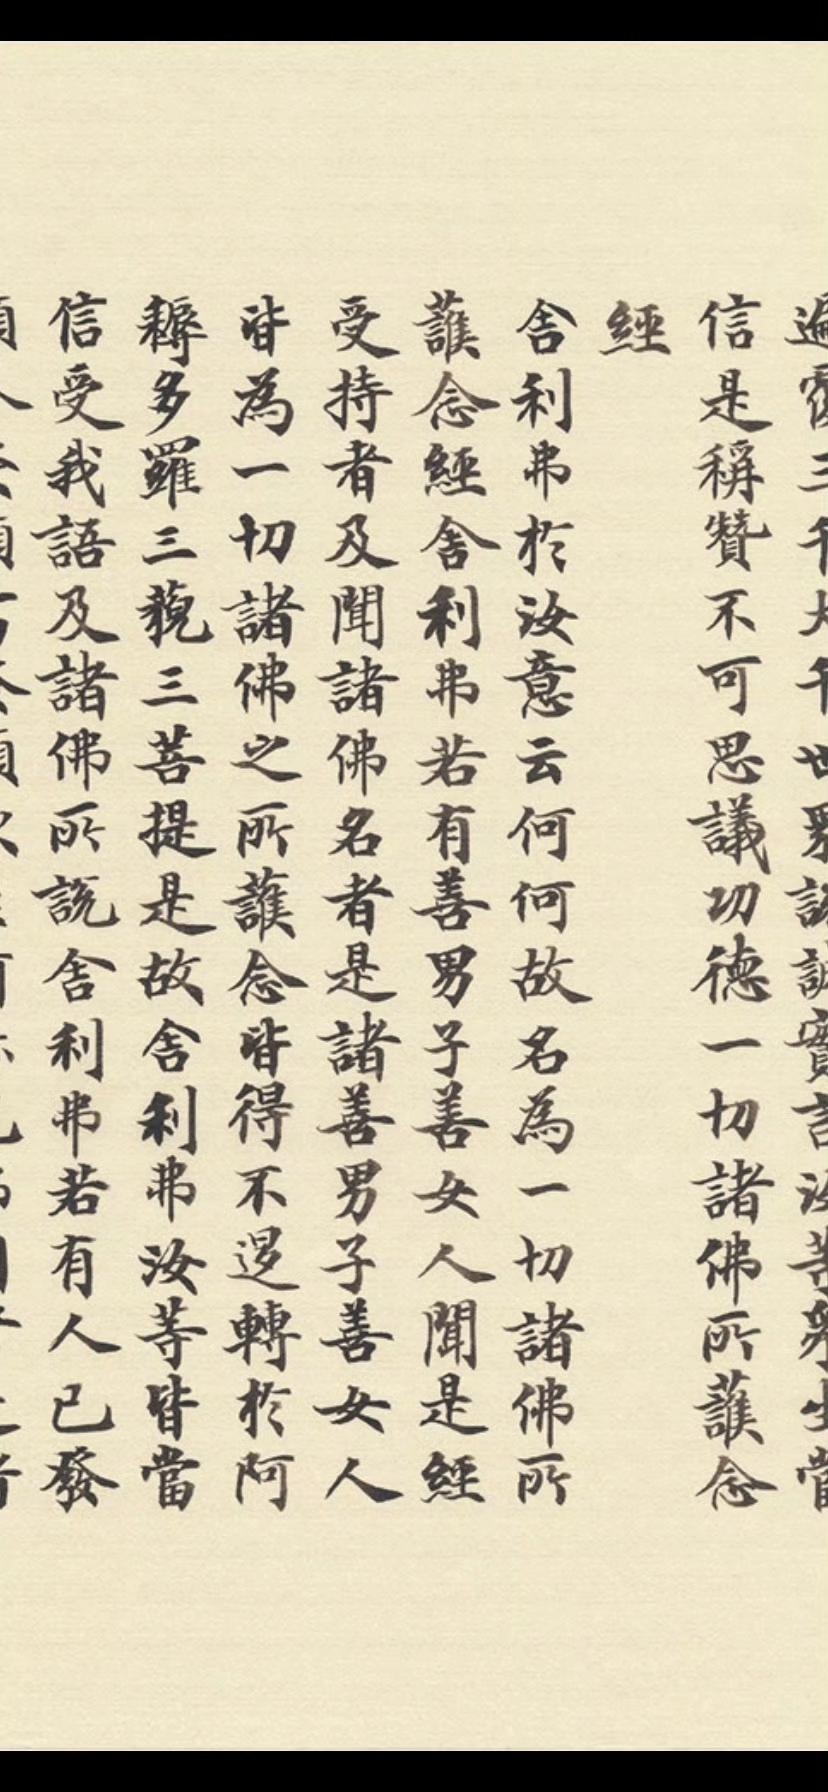 遍覆三千大千世界說誠實言汝等眾生當
信是稱贊不可思議功德一切諸佛所護念
經
舍利弗於汝意云何何故名為一切諸佛所
護念經舍利弗若有善男子善女人聞是經
受持者及聞諸佛名者是諸善男子善女人
皆為一切諸佛之所護念皆得不退轉於阿
耨多羅三藐三菩提是故舍利弗汝等皆當
信受我語及諸佛所說舍利弗若有人已發